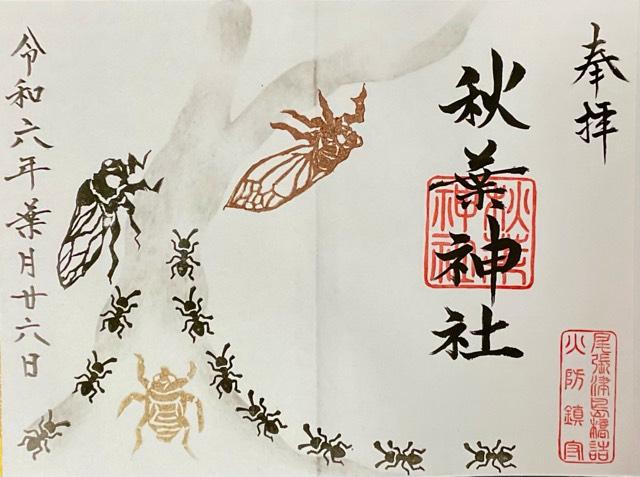 奉拝
秋葉神社
秋葉
神社
尾張津島橋詰
火防鎮守
令和六年葉月廿六日